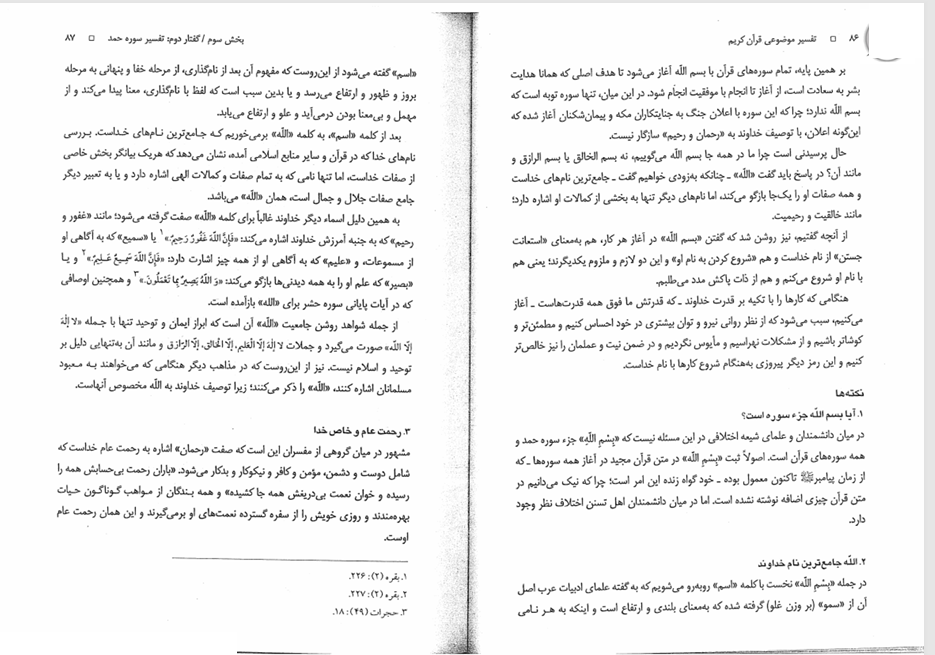 ۸۶ □ تفسیر موضوعی قرآن کریم
بر همین پایه، تمام سوره‌های قرآن با بسم اللّه آغاز می‌شود تا هدف اصلی که همانا هدایت
بشر به سعادت است، از آغاز تا انجام با موفقیت انجام شود. در این میان، تنها سوره توبه است که
بسم اللّه ندارد؛ چرا که این سوره با اعلان جنگ به جنایتکاران مکه و پیمان‌شکنان آغاز شده که
این‌گونه اعلان، با توصیف خداوند به «رحمان و رحیم» سازگار نیست.
حال پرسیدنی است چرا ما در همه جا بسم اللّه می‌گوییم، نه بسم الخالق یا بسم الرازق و
مانند آن؟ در پاسخ باید گفت «اللّه» ـ چنانکه به‌زودی خواهیم گفت ـ جامع‌ترین نام‌های خداست
و همه صفات او را یک‌جا بازگو می‌کند، اما نام‌های دیگر تنها به بخشی از کمالات او اشاره دارد؛
مانند خالقیت و رحیمیت.
از آنچه گفتیم، نیز روشن شد که گفتن «بسم اللّه» در آغاز هر کار، هم به‌معنای «استعانت
جستن» از نام خداست و هم «شروع کردن به نام او» و این دو لازم و ملزوم یکدیگرند؛ یعنی هم
با نام او شروع می‌کنم و هم از ذات پاکش مدد می‌طلبم.
هنگامی که کارها را با تکیه بر قدرت خداوند ـ که قدرتش ما فوق همه قدرت‌هاست ـ آغاز
می‌کنیم، سبب می‌شود که از نظر روانی نیرو و توان بیشتری در خود احساس کنیم و مطمئن‌تر و
کوشاتر باشیم و از مشکلات نهراسیم و مأیوس نگردیم و در ضمن نیت و عملمان را نیز خالص‌تر
کنیم و این رمز دیگر پیروزی به‌هنگام شروع کارها با نام خداست.
نکته‌ها
۱. آیا بسم اللّه جزء سوره است؟
در میان دانشمندان و علمای شیعه اختلافی در این مسئله نیست که «بِسْمِ اللّهِ» جزء سوره حمد و
همه سوره‌های قرآن است. اصولاً ثبت «بِسْمِ اللّه» در متن قرآن مجید در آغاز همه سوره‌ها ـ که
از زمان پیامبرﷺ تاکنون معمول بوده ـ خود گواه زنده این امر است؛ چرا که نیک می‌دانیم در
متن قرآن چیزی اضافه نوشته نشده است. اما در میان دانشمندان اهل تسنن اختلاف نظر وجود
دارد.
۲. اللّه جامع‌ترین نام خداوند
در جمله «بِسْمِ اللّه» نخست با کلمه «اسم» روبه‌رو می‌شویم که به گفته علمای ادبیات عرب اصل
آن از «سمو» (بر وزن غلو) گرفته شده که به‌معنای بلندی و ارتفاع است و اینکه به هر نامی
بخش سوم / گفتار دوم: تفسیر سوره حمد □ ۸۷
«اسم» گفته می‌شود از این‌روست که مفهوم آن بعد از نام‌گذاری، از مرحله خفا و پنهانی به مرحله
بروز و ظهور و ارتفاع می‌رسد و یا بدین سبب است که لفظ با نام‌گذاری، معنا پیدا می‌کند و از
مهمل و بی‌معنا بودن درمی‌آید و علو و ارتفاع می‌یابد.
بعد از کلمه «اسم»، به کلمه «اللّه» برمی‌خوریم که جامع‌ترین نام‌های خداست. بررسی
نام‌های خدا که در قرآن و سایر منابع اسلامی آمده، نشان می‌دهد که هریک بیانگر بخش خاصی
از صفات خداست، اما تنها نامی که به تمام صفات و کمالات الهی اشاره دارد و یا به تعبیر دیگر
جامع صفات جلال و جمال است، همان «اللّه» می‌باشد.
به همین دلیل اسماء دیگر خداوند غالباً برای کلمه «اللّه» صفت گرفته می‌شود؛ مانند «غفور و
رحیم» که به جنبه آمرزش خداوند اشاره می‌کند: «فَإِنَّ اللّهَ غَفُورٌ رَحِیمٌ.»۱ یا «سمیع» که به آگاهی او
از مسموعات، و «علیم» که به آگاهی او از همه چیز اشارت دارد: «فَإِنَّ اللّهَ سَمِیعٌ عَلِیمٌ.»۲ و یا
«بصیر» که علم او را به همه دیدنی‌ها بازگو می‌کند: «وَ اللّهُ بَصِیرٌ بِما تَعْمَلُونَ.»۳ و همچنین اوصافی
که در آیات پایانی سوره حشر برای «الله» بازآمده است.
از جمله شواهد روشن جامعیت «اللّه» آن است که ابراز ایمان و توحید تنها با جمله «لا إلهَ
إلّا اللّه» صورت می‌گیرد و جملات لا إلهَ إلّا العَلیم، إلّا الخالق، إلّا الرّازق و مانند آن به‌تنهایی دلیل بر
توحید و اسلام نیست. نیز از این‌روست که در مذاهب دیگر هنگامی که می‌خواهند به معبود
مسلمانان اشاره کنند، «اللّه» را ذکر می‌کنند؛ زیرا توصیف خداوند به اللّه مخصوص آنهاست.
۳. رحمت عام و خاص خدا
مشهور در میان گروهی از مفسران این است که صفت «رحمان» اشاره به رحمت عام خداست که
شامل دوست و دشمن، مؤمن و کافر و نیکوکار و بدکار می‌شود. «باران رحمت بی‌حسابش همه را
رسیده و خوان نعمت بی‌دریغش همه جا کشیده» و همه بندگان از مواهب گوناگون حیات
بهره‌مندند و روزی خویش را از سفره گسترده نعمت‌های او برمی‌گیرند و این همان رحمت عام
اوست.
۱. بقره (۲): ۲۲۶.
۲. بقره (۲): ۲۲۷.
۳. حجرات (۴۹): ۱۸.